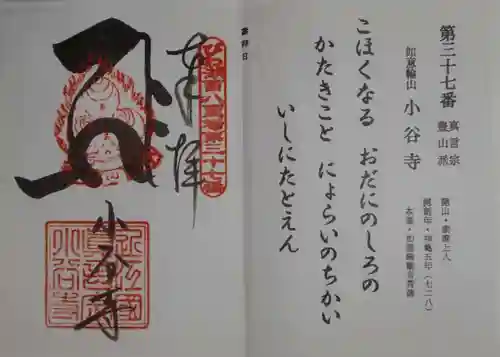 第三十七番 真言宗
豊山派
如意輪山 小谷寺
開山・泰澄上人
開創年・神亀五年(七二八)
本尊・如意輪観音菩薩
こほくなる おだにのしろの
かたきこと によらいのちかい
いしにたとえん
奉拝
小谷寺